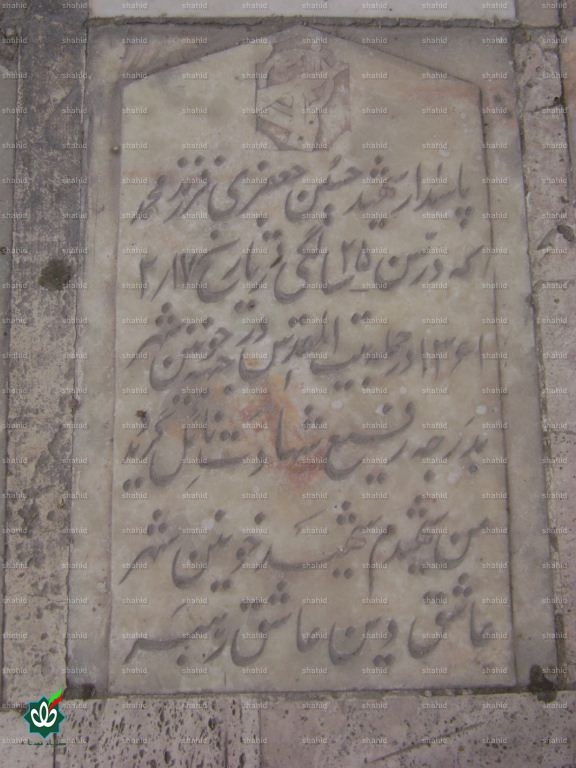 پاسدار شهید حسین جعفری فرزند محمد
که در سن ۲۵ سالگی در تاریخ ۲/۱۷
۱۳۶۱ در حمله بیت المقدس در جبهه خونین شهر
بدرجه رفیع شهادت نائل گردید
من شهیدم شهید خونین شهر
عاشق دین عاشق رهبر